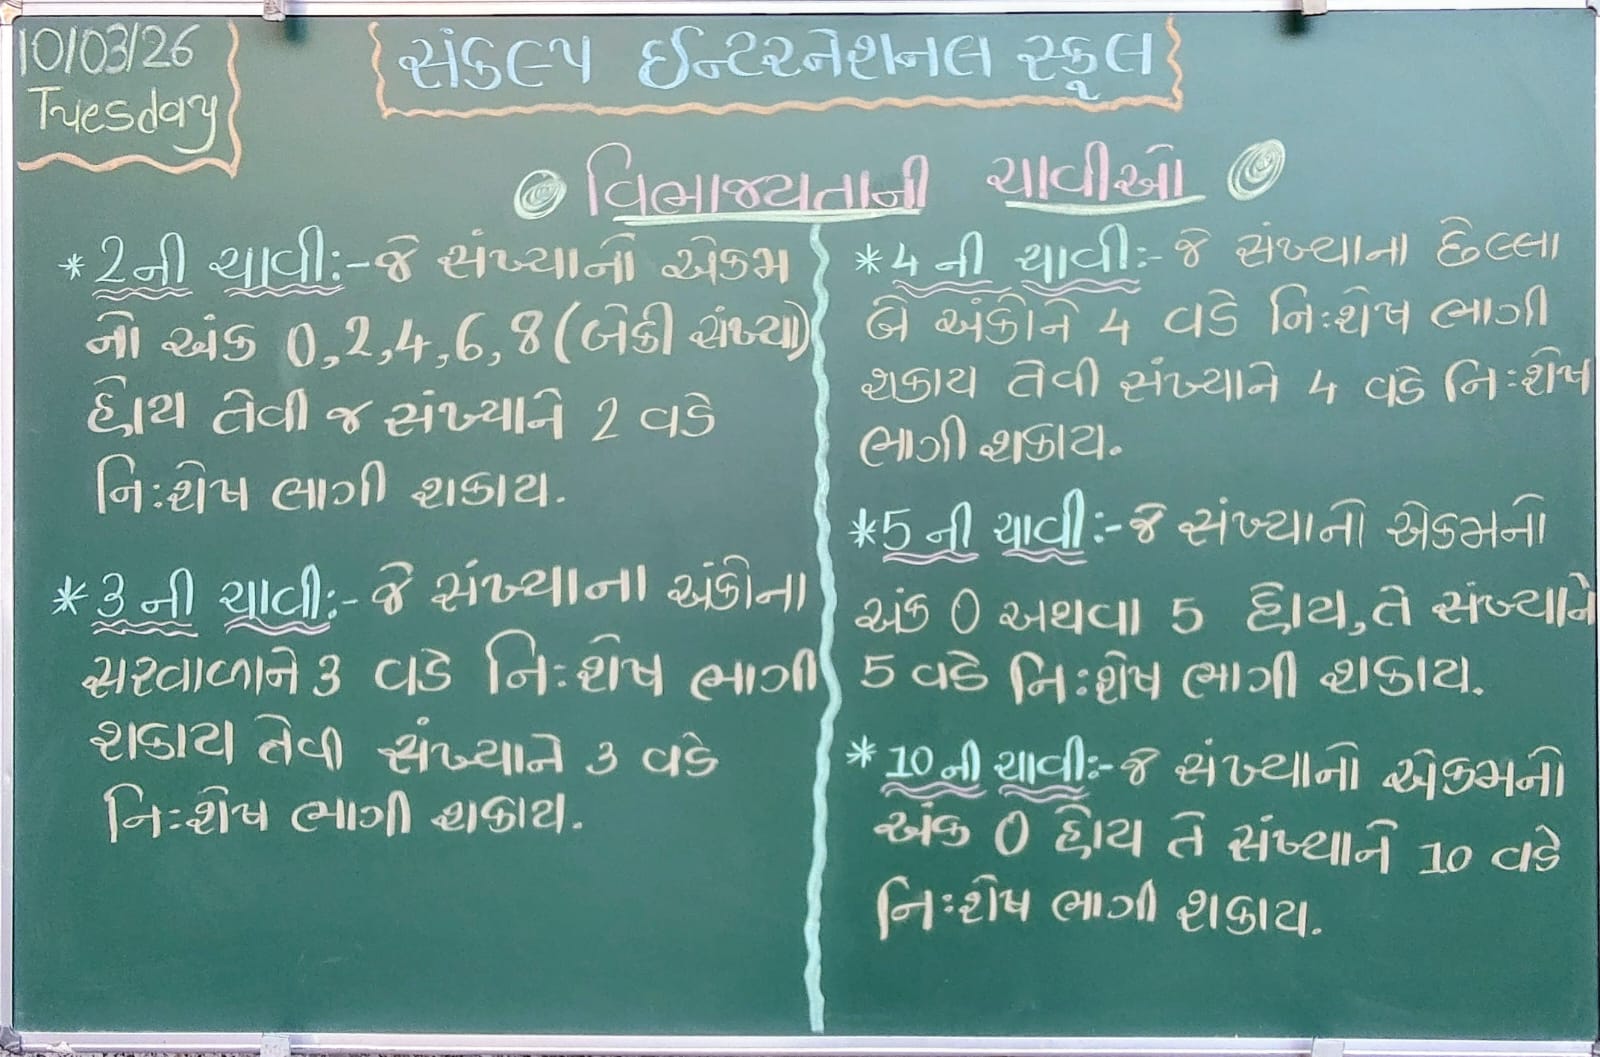 10/03/26
Tuesday
સંકલ્પ ઈન્ટરનેશનલ સ્કૂલ
વિભાજ્યતાની ચાવીઓ
* 2ની ચાવી:- જે સંખ્યાનો એકમ
નો અંક 0,2,4,6,8 (બેકી સંખ્યા)
હોય તેવી જ સંખ્યાને 2 વડે
નિ:શેષ ભાગી શકાય.
* 3 ની ચાવી:- જે સંખ્યાના અંકોના
સરવાળાને 3 વડે નિ:શેષ ભાગી
શકાય તેવી સંખ્યાને 3 વડે
નિ:શેષ ભાગી શકાય.
* 4 ની ચાવી:- જે સંખ્યાના છેલ્લા
બે અંકોને 4 વડે નિ:શેષ ભાગી
શકાય તેવી સંખ્યાને 4 વડે નિ:શેષ
ભાગી શકાય.
* 5 ની ચાવી:- જે સંખ્યાનો એકમનો
અંક 0 અથવા 5 હોય, તે સંખ્યાને
5 વડે નિ:શેષ ભાગી શકાય.
* 10 ની ચાવી:- જે સંખ્યાનો એકમનો
અંક 0 હોય તે સંખ્યાને 10 વડે
નિ:શેષ ભાગી શકાય.